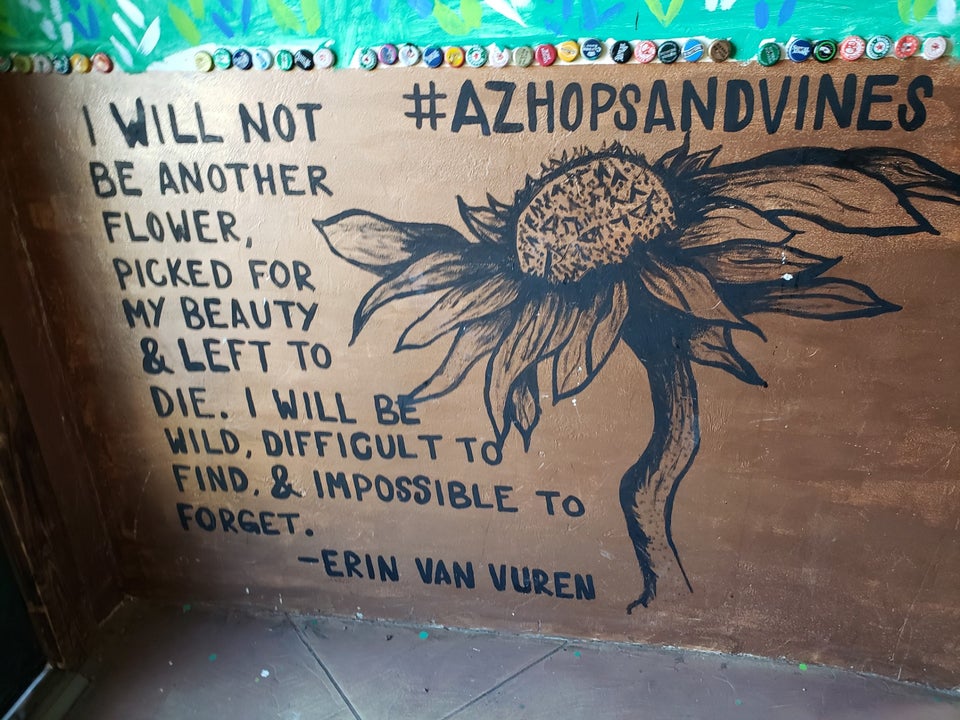 #AZHOPSANDVINES
I WILL NOT
BE ANOTHER
FLOWER,
PICKED FOR
MY BEAUTY
& LEFT TO
DIE. I WILL BE
WILD, DIFFICULT TO
FIND, & IMPOSSIBLE TO
FORGET.
-ERIN VAN VUREN